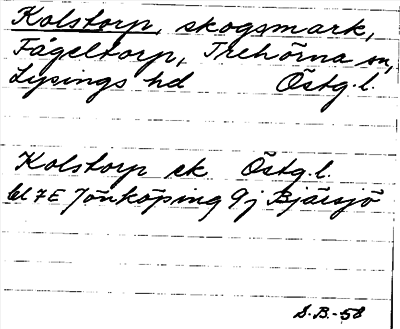 Kolstorp, skogsmark,
Fågeltorp, Trehörna sn,
Lysings hd Östg.l.
Kolstorp ek Östg.l.
bl 7E Jönköping 9j Bjärsjö
S.B.-58